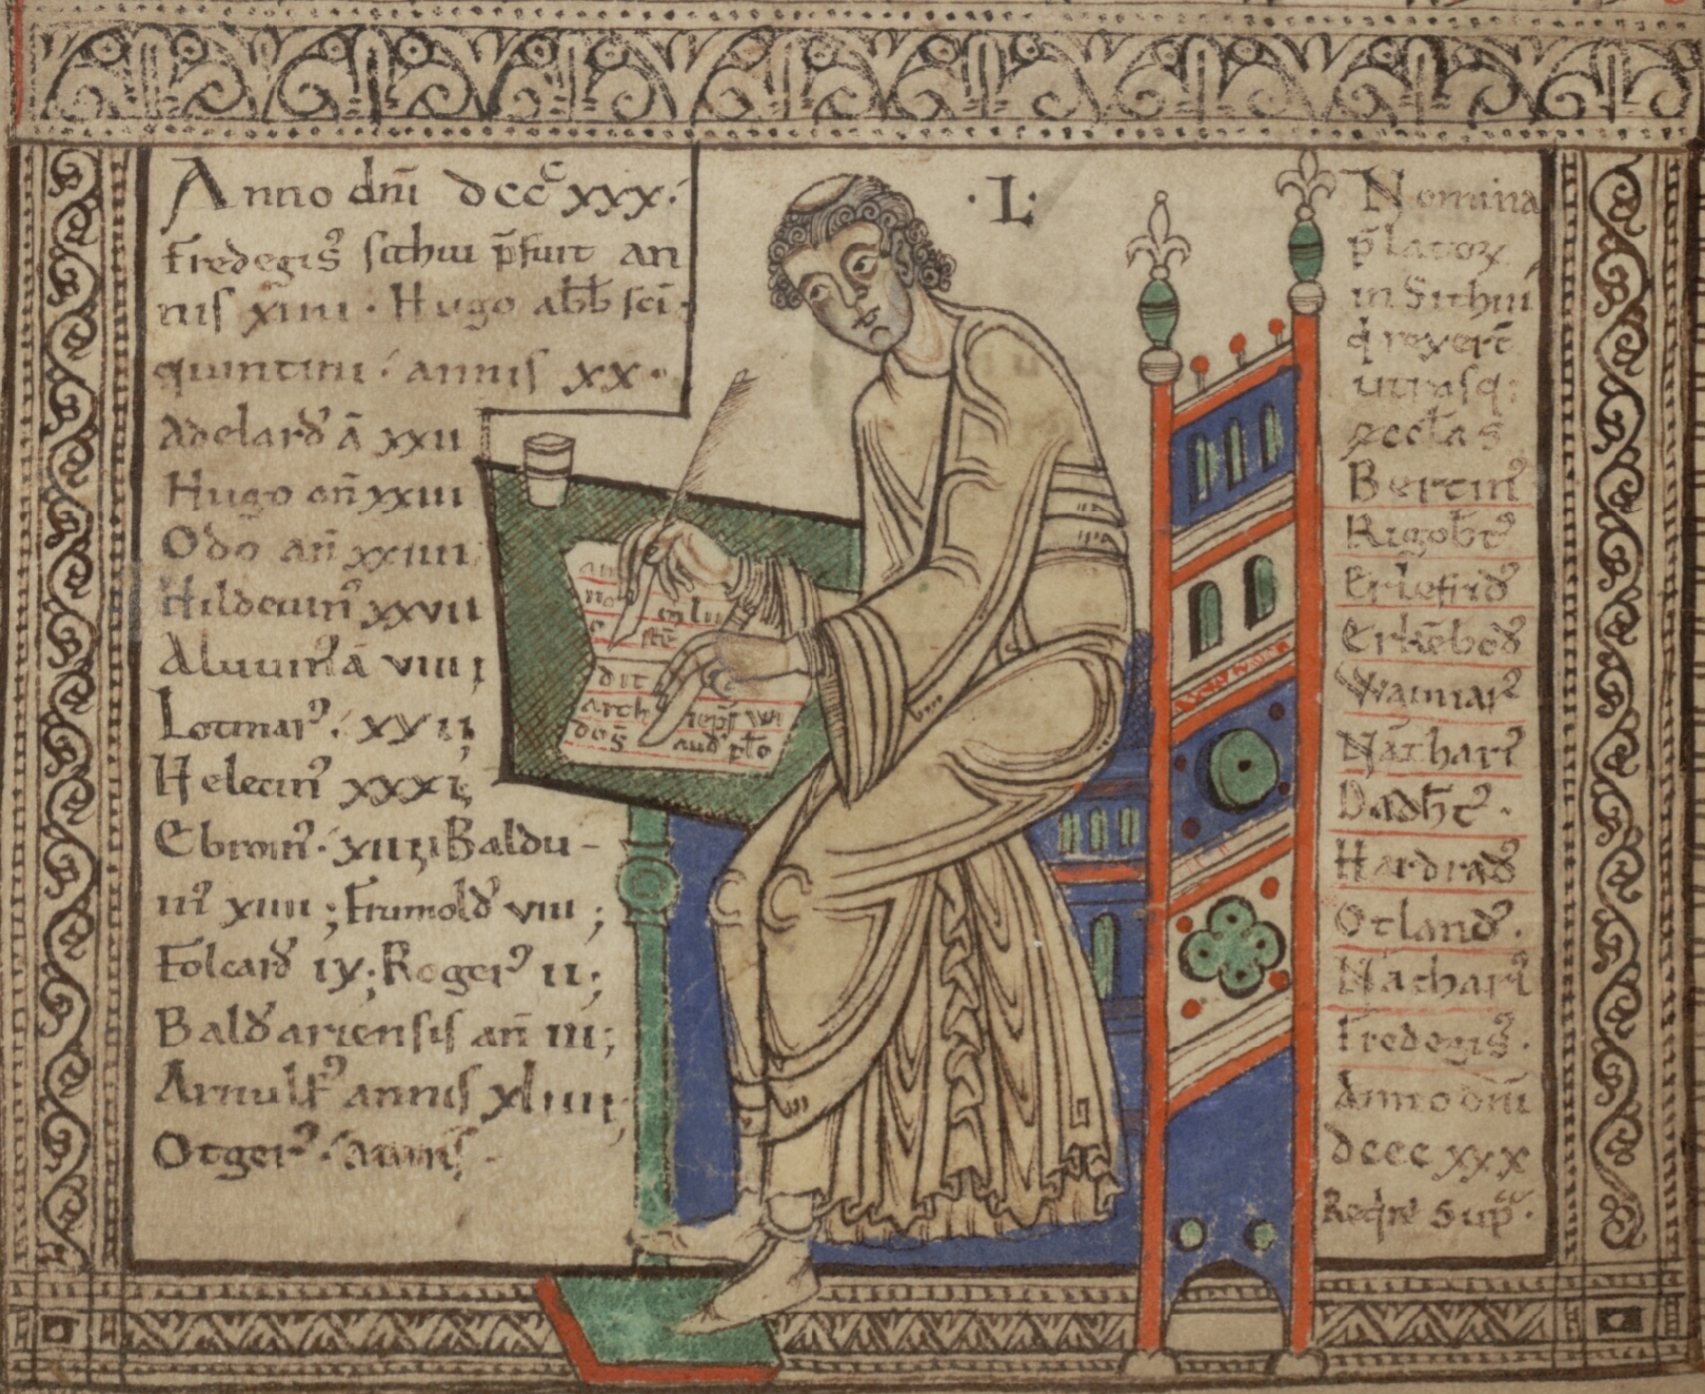 Anno dn̄i dccᶜxxx·
Fredegisꝰ sithiu p̄fuit an
nis xiiii · Hugo abb̄ sci·
quintini · annis xx·
Adelardꝰ ā xxii
Hugo an̄ xxiii
Odo an̄ xxiiii
Hilduuinꝰ xxvii
Aluuinꝰ ā viiii
Lotmarꝰ · xx ii
Helecinꝰ xxxi
Ebroinꝰ · xiiii Baldu-
inꝰ xiiii ; Frumoldꝰ viii ;
Folcardꝰ ix; Rogerꝰ ii;
Baldꝰ ariensis an̄ iii;
Arnulfꝰ annis xliiii;
Otgerꝰ · annis
·L·
an
no
dit
arch iep̄s wi
dos̄
Nomina
p̄latoꝝ
in Sithiu
q rexer̄t
utrasq;
æccl̄as
Bertinꝰ
Rigobt̄ꝰ
Erlefridꝰ
Erkēbodꝰ
Waimarꝰ
Nathariꝰ
Dadb̄tꝰ ·
Hardradꝰ
Otlandꝰ ·
Nathariꝰ
Fredegisꝰ ·
Anno dn̄i
dccc xxx
Reqͥre sup̄ ·